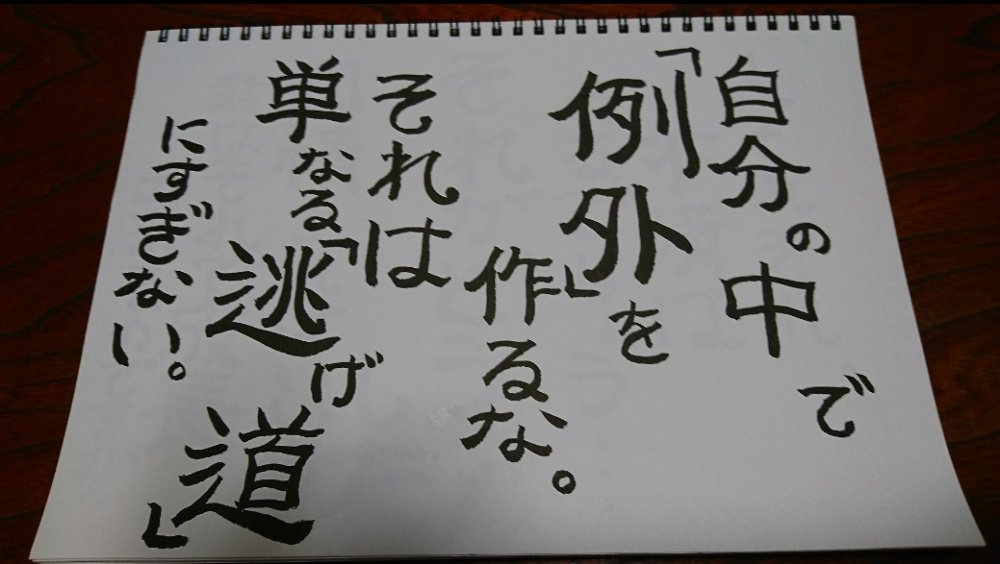 自分の中で
「例外」を
作るな。
それは
単なる「逃げ道」
にすぎない。